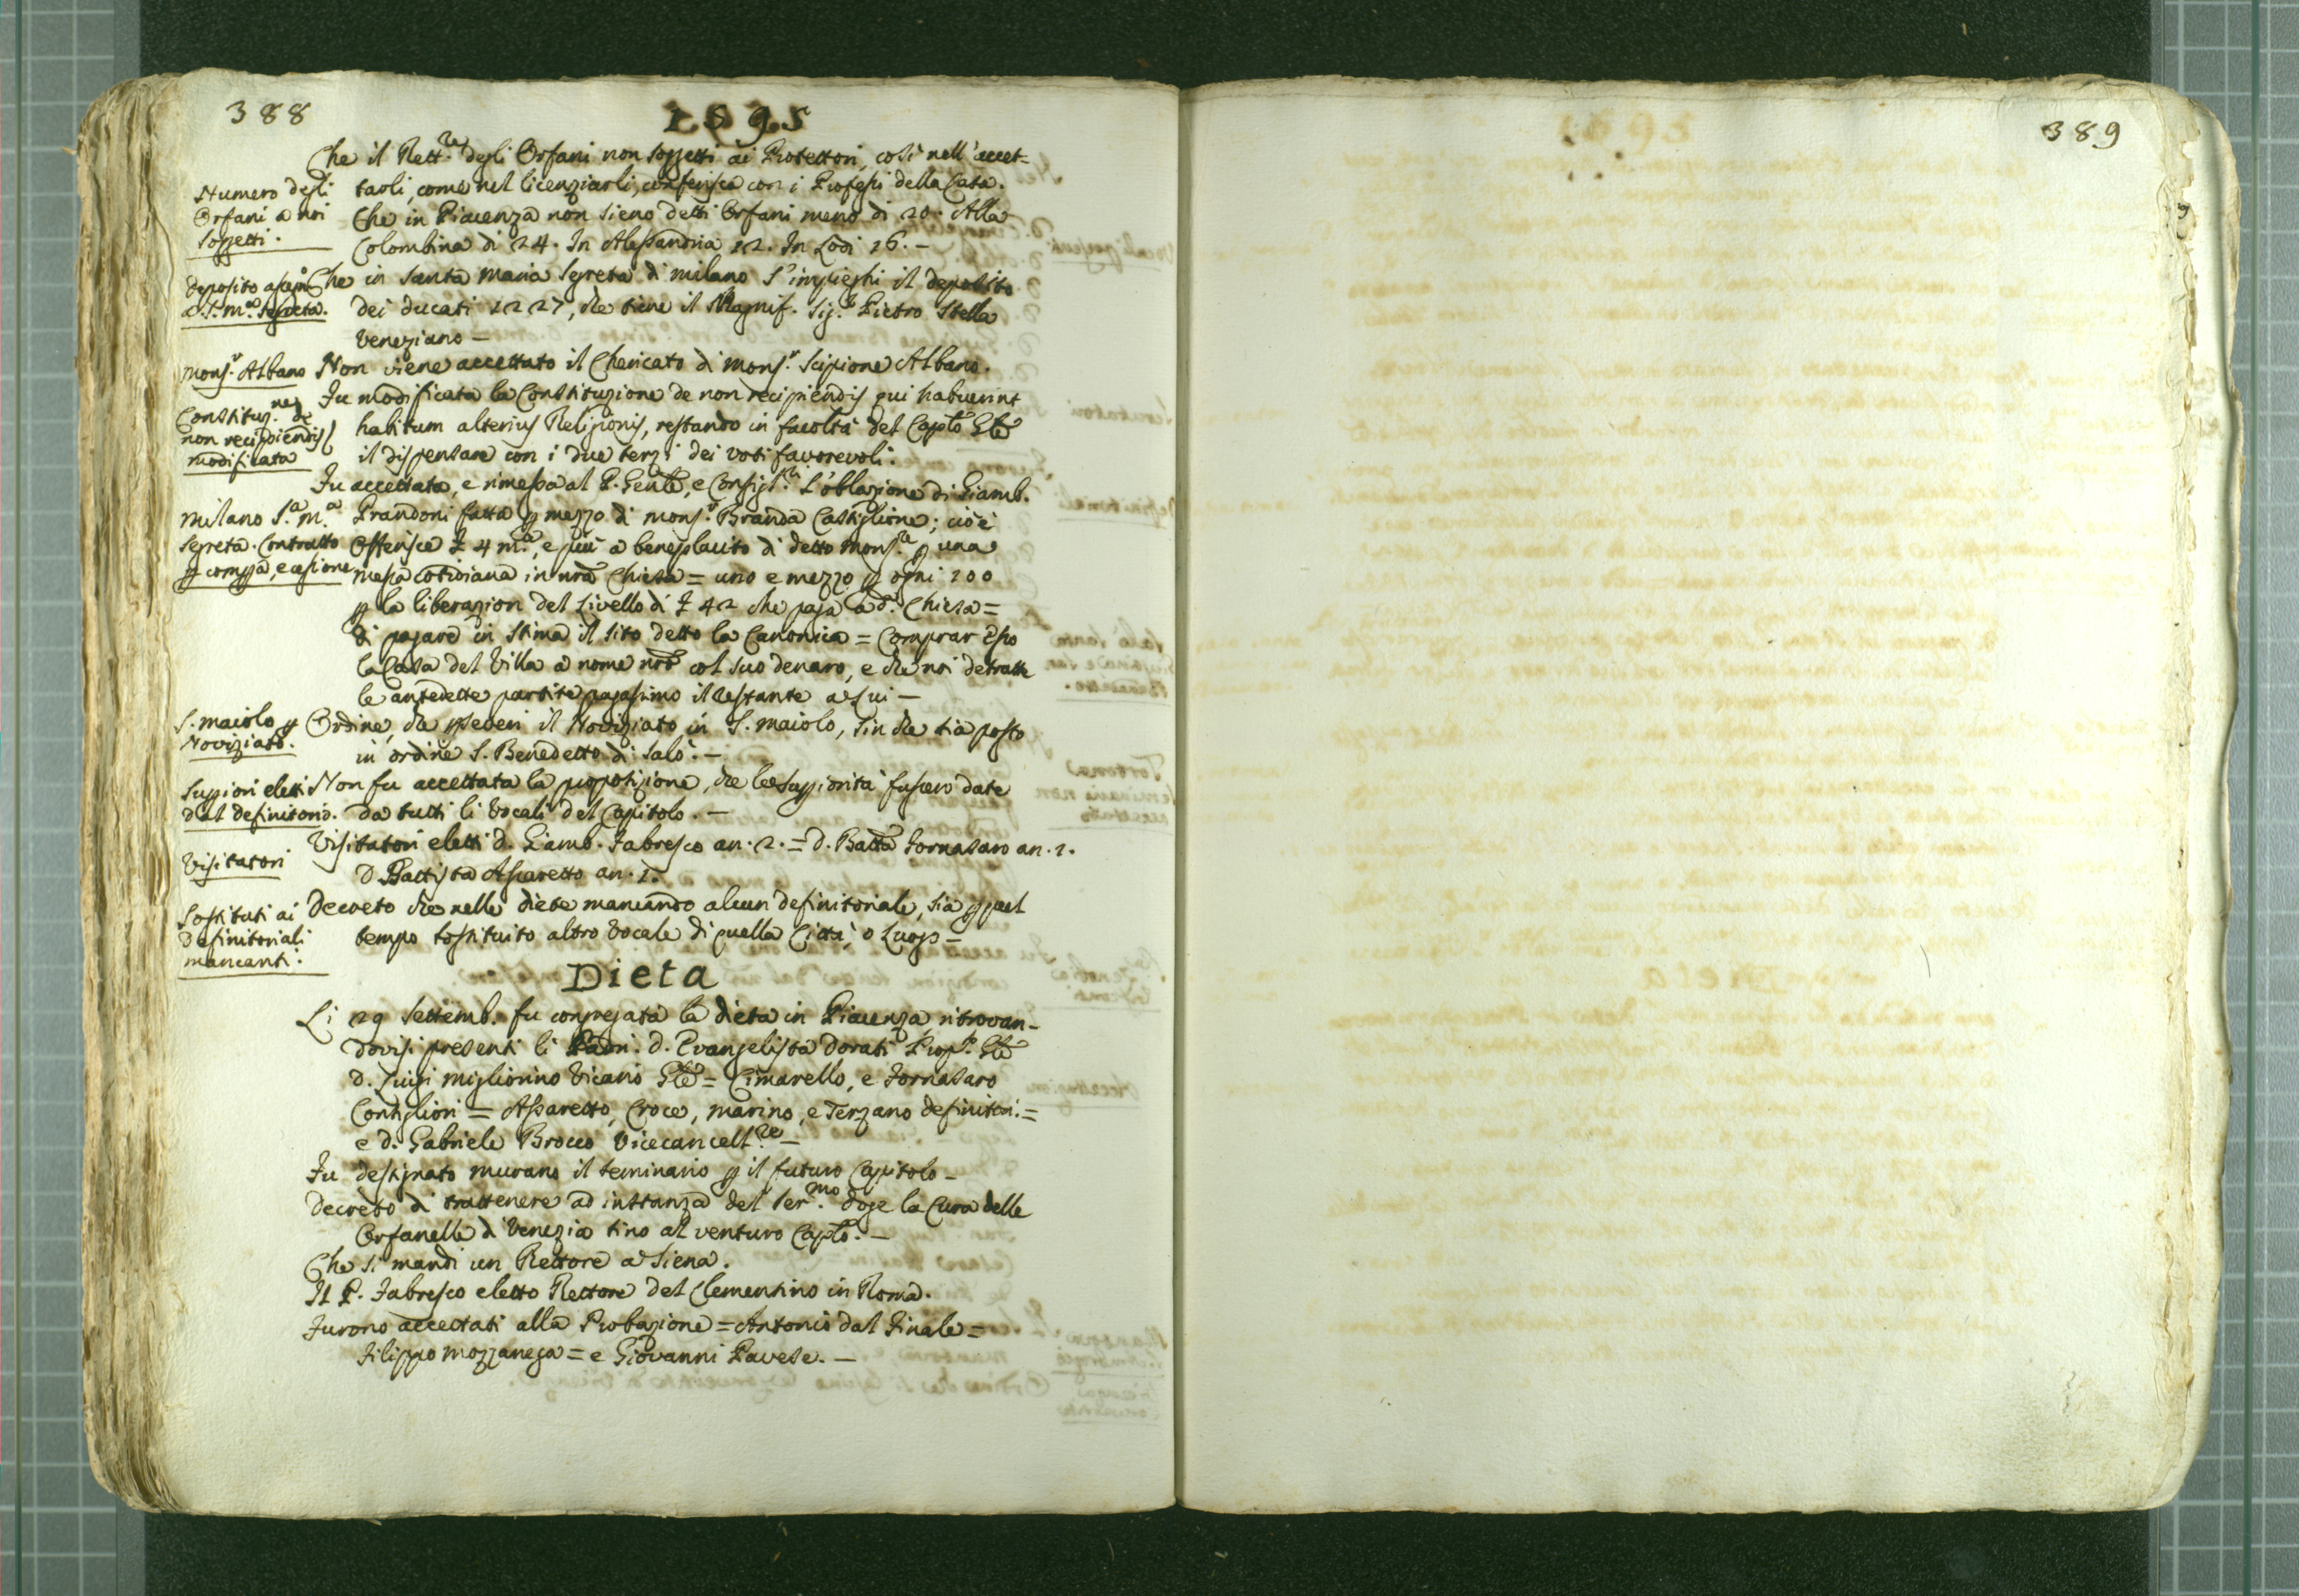 388
1595
Che il Rett.re degli Orfani non soggetti ai Protettori, così nell'accet=
Numero degli
Orfani a noi
soggetti.
tarli, come nel licenziarli, conferisca con i Professi della Casa.
Che in Piacenza non sieno detti Orfani meno di 20. Alla
Colombina di 24. In Alessandria 12. In Lodi 16. –
deposito
a S. M.a Segreta.
Che in Santa Maria Segreta di Milano s'impieghi il deposito
dei ducati 1227, che tiene il Magnif. Sig.r Pietro Stella
Veneziano –
Mons.r Albano
Non viene accettato il Chericato di Mons.r Scipione Albano.
Constituz.ne de
non recipiendis
modificata
Fu modificata la Constituzione de non recipiendis qui habuerint
habitum alterius Religionis, restando in facoltà del Caplo Gle
il dispensare con i due terzi dei voti favorevoli.
Milano S.a M.a
Segreta. Contratto
p compra, e cessione
Fu accettata, e rimessa al P. Genle, e Consigl.ri l'oblazione di Giamb.
Prandoni fatta p mezzo di Mons.r Branda Castiglione; cioè
Offerisce £ 4 m.a, e più a beneplacito di detto Mons.re p una
messa cotidiana in nra Chiesa = uno e mezzo p ogni 100
p la liberazion del Livello di £ 42 che paga a d.a Chiesa =
di pagare in stima il sito detto la Canonica = Comprar Esso
la Casa del Villa a nome nro col suo denaro, e che noi detratte
le antedette partite pagassimo il restante a Lui –
S. Maiolo p
Noviziato.
Ordine, che pseveri il Noviziato in S. Maiolo, sin che sia posto
in ordine S. Benedetto di Salò. –
Suppiori eletti
dal Definitorio.
Non fu accettata la proposizione, che le Suppiorità fussero date
da tutti li Vocali del Capitolo. –
Visitatori
Visitatori eletti d. Giamb. Fabresco an. 2. = d. Batta Fornasaro an. 1.
D. Battista Assaretto an. 1.
Sostituti ai
Definitoriali
mancanti.
Decreto che nelle diete mancando alcun definitoriale, sia p quel
tempo sostituito altro Vocale di quella Città, o Luogo –
Dieta
Li 29 Settemb. fu congregata la dieta in Piacenza, ritrovan-
dovisi presenti li Padri. d. Evangelista Dorati Prop.to Gle
d. Luigi Migliorino Vicario Gle = Cimarello, e Fornasaro
Consiglieri = Assaretto, Croce, Marino, e Terzano definitori. =
e d. Gabriele Brocco Vicecancell.re –
Fu destinato Murano il seminario p il futuro Capitolo –
Decreto di trattenere ad instanza del Ser.mo Doge la Cura delle
Orfanelle di Venezia sino al venturo Caplo. –
Che si mandi un Rettore a Siena.
Il P. Fabresco eletto Rettore del Clementino in Roma.
Furono accettati alla Probazione = Antonio dal Finale =
Filippo Mozzanega = e Giovanni Pavese. –
389